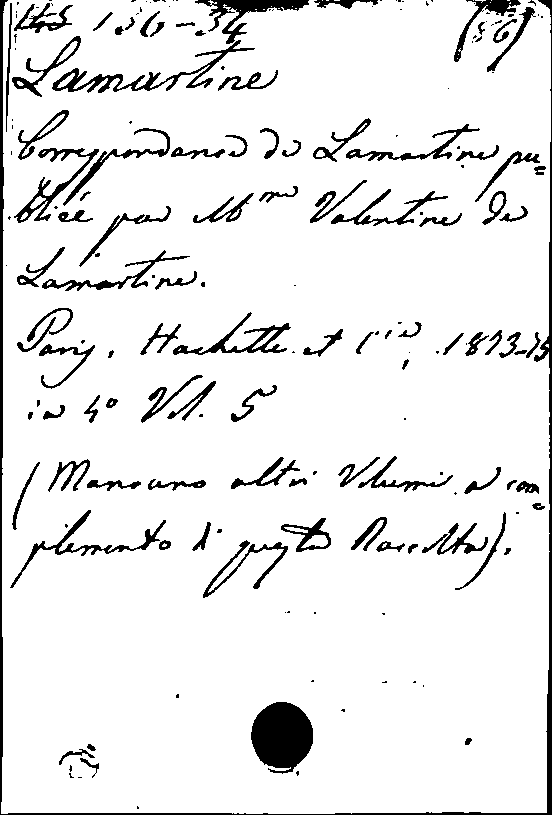 136-34 (56)
Lamartine
Correspondance de Lamartine pu=
bliée par Mme Valentine de
Lamartine.
Paris, Hachette et Cie, 1873-75
in 4º Vol. 5
(Mancano altri Volumi a com=
plemento di questa Raccolta).